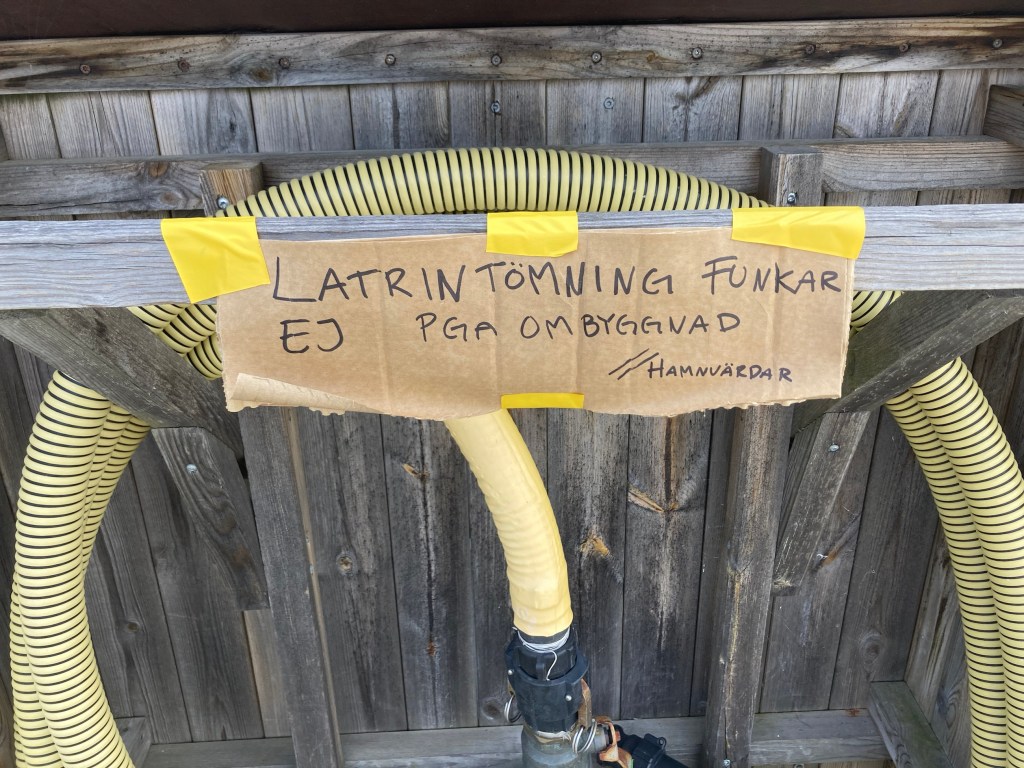 LATRINTÖMNING FUNKAR
EJ PGA OMBYGGNAD
// HAMNVÄRDAR